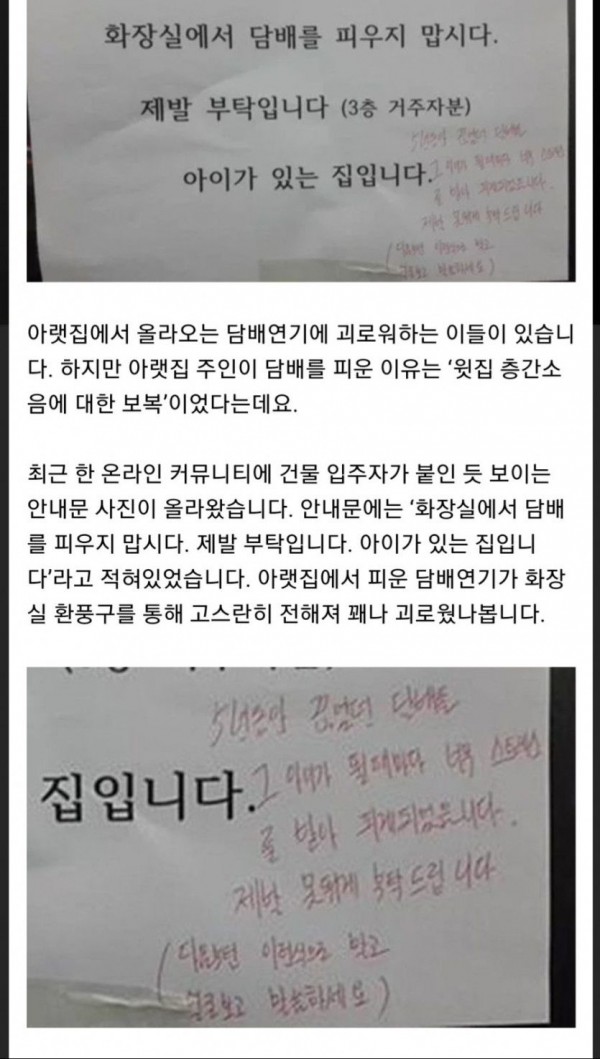 화장실에서 담배를 피우지 맙시다.
제발 부탁입니다 (3층 거주자분)
아이가 있는 집입니다.
5년동안 끊었던 담배를
그 아이가 뛸때마다 너무 스트레스
를 받아 피게되었습니다.
제발 못뛰게 부탁드립니다
(다음부턴 이런식으로 말고
얼굴보고 말씀하세요)
아랫집에서 올라오는 담배연기에 괴로워하는 이들이 있습니
다. 하지만 아랫집 주인이 담배를 피운 이유는 ‘윗집 층간소
음에 대한 보복’이었다는데요.
최근 한 온라인 커뮤니티에 건물 입주자가 붙인 듯 보이는
안내문 사진이 올라왔습니다. 안내문에는 ‘화장실에서 담배
를 피우지 맙시다. 제발 부탁입니다. 아이가 있는 집입니
다’라고 적혀있었습니다. 아랫집에서 피운 담배연기가 화장
실 환풍구를 통해 고스란히 전해져 꽤나 괴로웠나봅니다.
집입니다.
5년동안 끊었던 담배를
그 아이가 뛸때마다 너무 스트레스
를 받아 피게되었습니다.
제발 못뛰게 부탁드립니다
(다음부턴 이런식으로 말고
얼굴보고 말씀하세요)